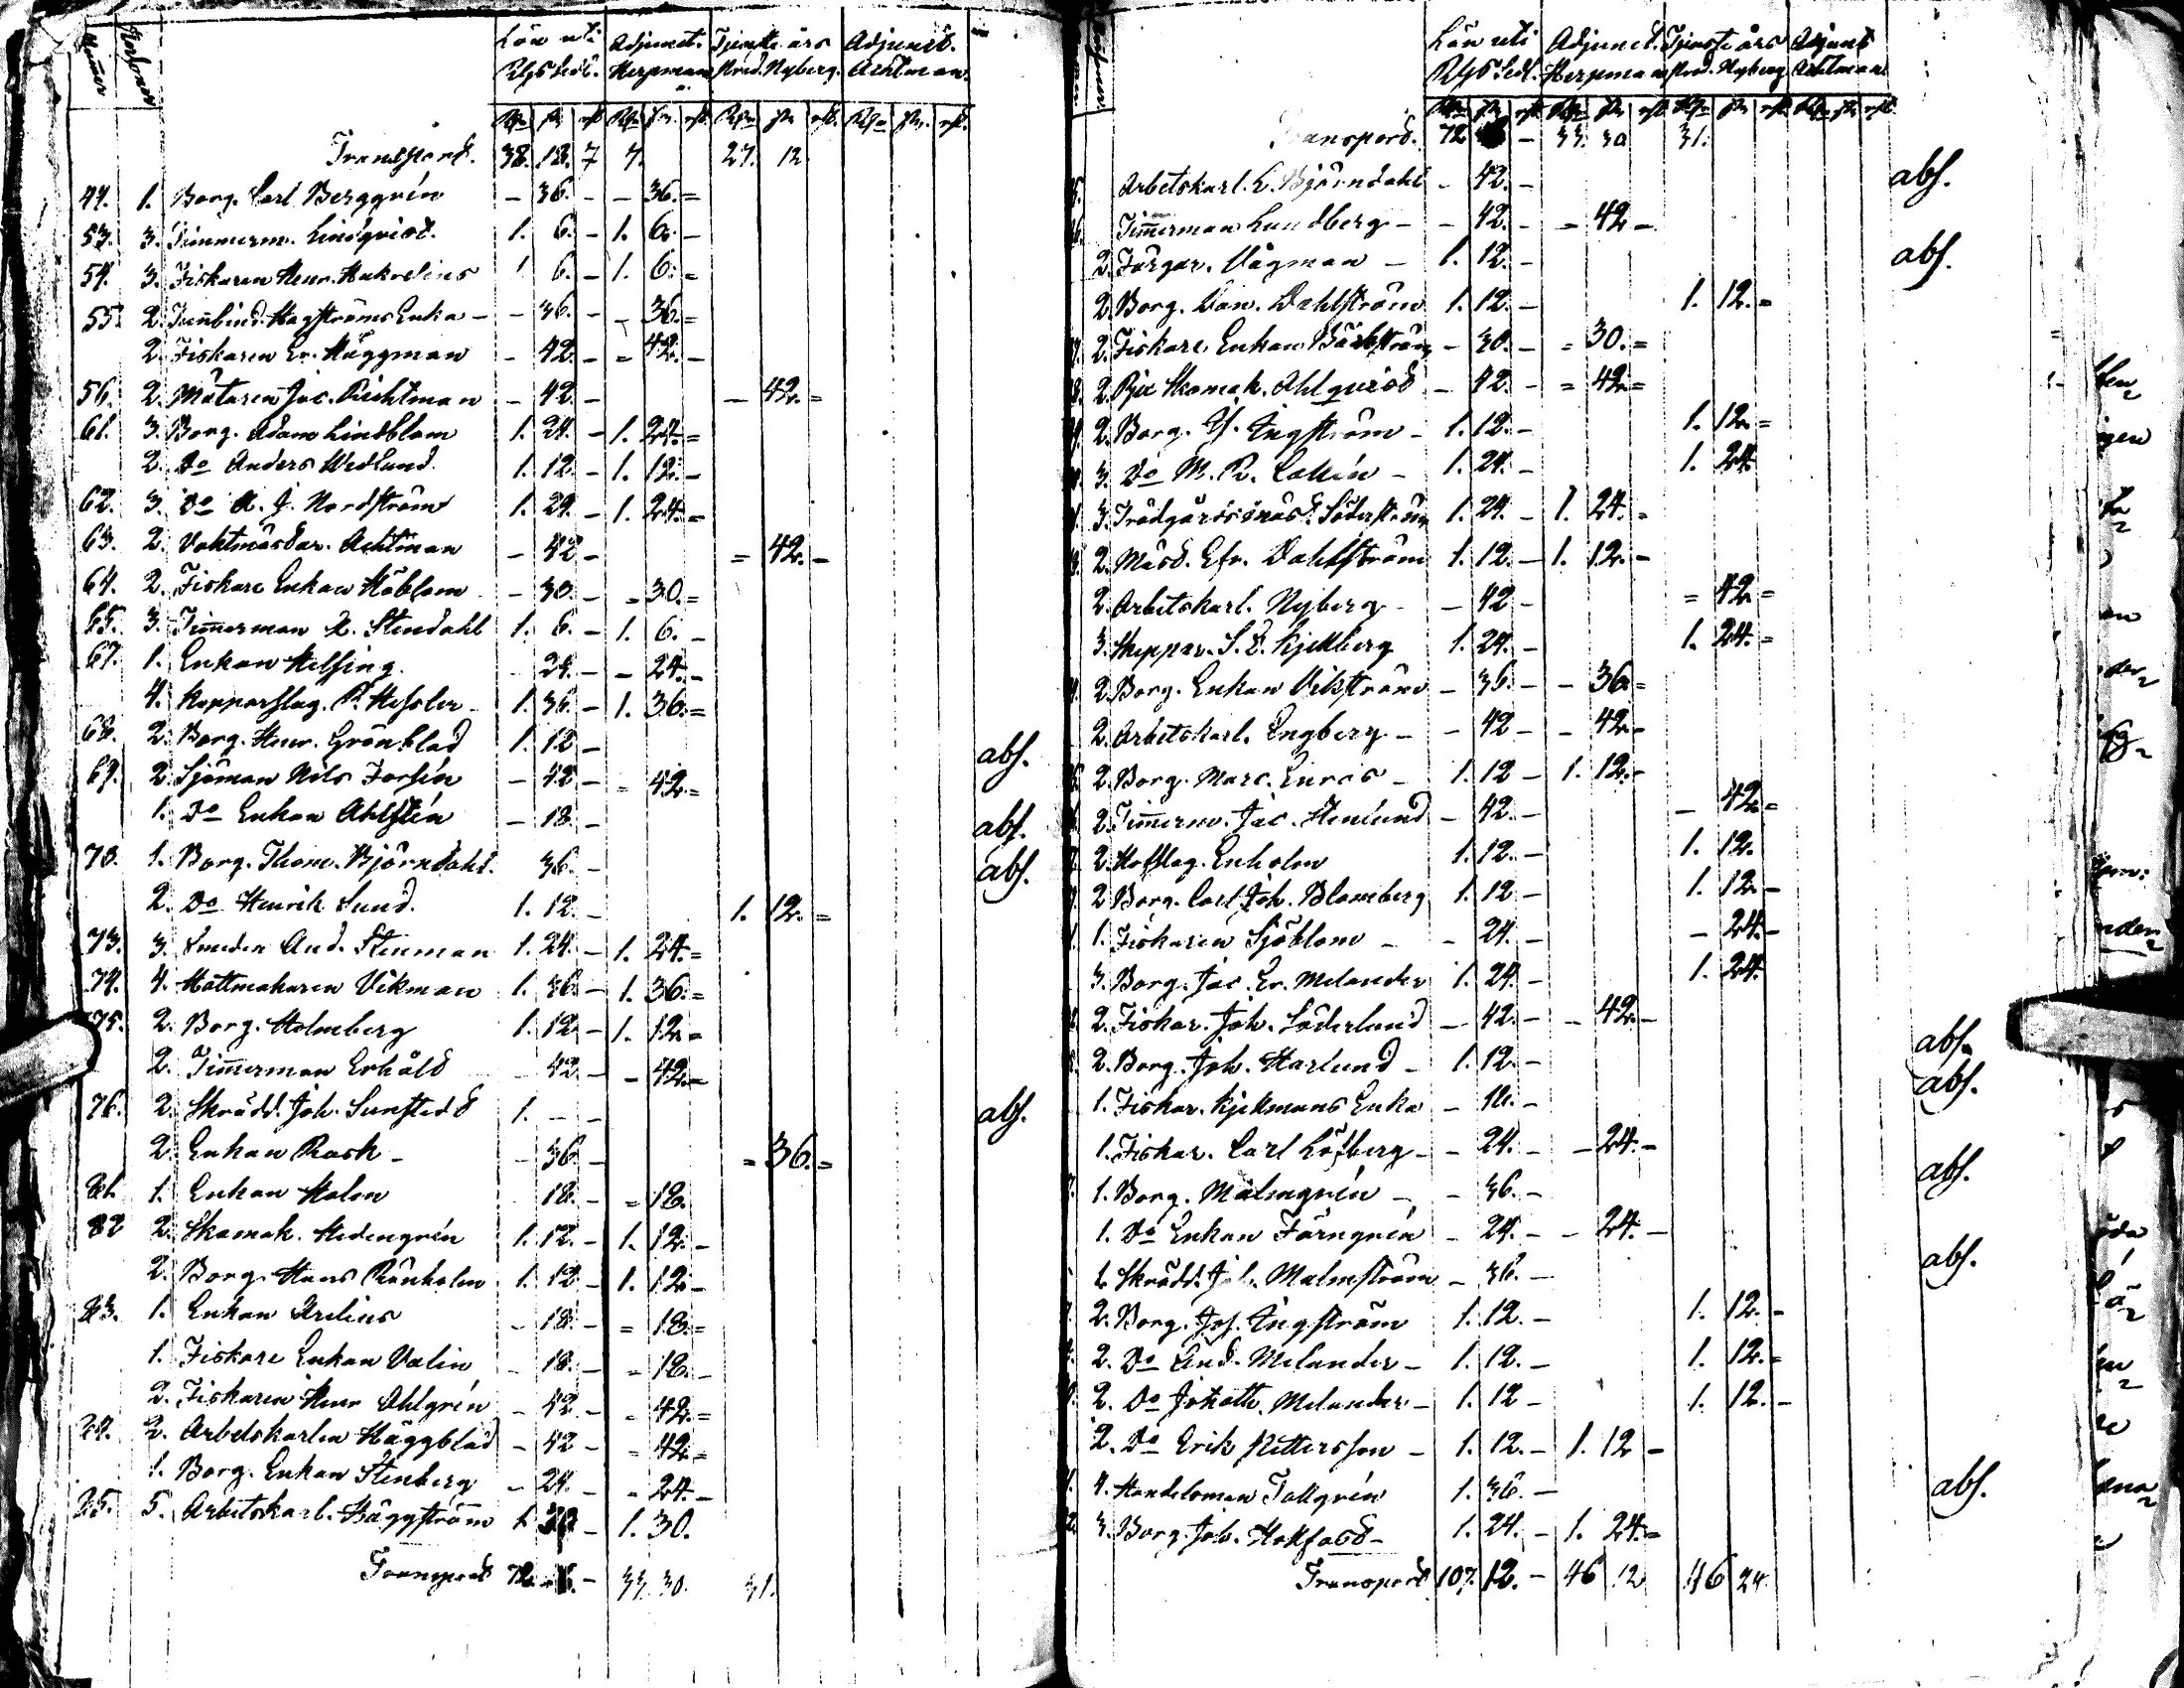 Numer Personer Lön uti Adjunct. Tjenste års Adjunct.
RgsSedl. Herpman pred. Nyberg. Achtman
Rgs ß rst. Rgs ß rst. Rgs ß rst. Rgs ß rst.
Transport. 38. 12. 7 7. 27. 12
47. 1. Borg. Carl Berggrén - 36. - - 36. =
53. 3. Timmerm. Lindqvist. 1. 6. - 1. 6. -
54. 3. Fiskaren Henr. Hakvelius 1 6. - 1. 6. =
55. 2. Hagströms Enka - - 36. - - 36. =
2. Fiskaren Er. Häggman - 42. - = 42. -
56. 2. Mätaren Jac. Richtman - 42. - - 42. =
61. 3. Borg. Adam Lindblom 1. 24. - 1. 24. =
2. Do Anders Wedlund. 1. 12. - 1. 12. -
62. 3. Do A. J. Nordström 1. 24. - 1. 24. =
63. 2. Vaktmästar. Achtman - 42 - = 42. -
64. 2. Fiskare Enkan Höblom - 30. - = 30. =
65. 3. Timmerman A. Stendahl 1. 6. - 1. 6. -
67. 1. Enkan Helsing. - 24. - - 24. -
4. Kopparslag. P. Hessler - 1. 36. - 1. 36. =
68. 2. Borg. Henr. Grönblad 1. 12 - abs.
69. 2. Sjöman Nils Forsén - 42 - = 42. =
1. Do Enkan Ahlstén - 18. - abs.
70. 1. Borg. Thom. Björndahl. 36. - abs.
2. Do Henrik Sund. 1. 12. - 1. 12. =
73. 3. Smeden And. Stenman 1. 24. - 1. 24. =
74. 4. Hattmakaren Vikman 1. 36. - 1. 36. =
75. 2. Borg. Holmberg 1. 12. - 1. 12. =
2. Timmerman Erhåld - 42. - - 42. =
76. 2. Skrädd. Joh. Sunstedt 1. - - abs.
2. Enkan Rask - - 36. - = 36. =
81. 1. Enkan Holm - 18. - = 18.
82 2. Skomak. Hedengrén 1. 12. - 1. 12. -
2. Borg. Hans Rönholm 1. 12. - 1. 12. -
83. 1. Enkan Arelius - 18. - = 18. =
1. Fiskare Enkan Valin - 18. - = 18. -
2. Fiskaren Henr Ahlgrén - 42 - = 42. =
84. 2. Arbetskarlen Häggblad - 42 - = 42. =
1. Borg. Enkan Stenberg - 24. - = 24. -
85. 5. Arbetskarl. Häggström 1. 30 - 1. 30.
Transport 72. - 33. 30. 31.
Lön uti Adjunct. Tjenste års Adjunct
RgsSedl. Herpman pred. Nyberg Achtman
Rgs ß rst. Rgs ß rst. Rgs ß rst. Rgs ß rst.
Transport. 72 - 33. 30 31.
Arbetskarl. L. Björndahl - 42. - abs.
Timmerman Lundberg - - 42. - = 42 -
2. Färgar. Vågman - 1. 12. - abs.
2. Borg. Dan. Dahlström 1. 12. - 1. 12. =
2. Fiskare Enkan Bäckström - 30. - = 30. =
2. Skomak. Ahlqvist - 42 - = 42. =
2. Borg. Engström - 1. 12. - 1. 12. =
3. Do M. R. Collén - 1. 24. - 1. 24
3. Trädgårdsmäst. Söderström 1. 24. - 1. 24. =
2. Mäst. Efr. Dahlström 1. 12. - 1. 12. -
2. Arbetskarl. Nyberg - - 42 - = 42 =
3. Skeppar. Kjellberg 1. 24. - 1. 24. =
2. Borg. Enkan Vikström - 36. - - 36. =
2. Arbetskarl. Engberg - - 42 - - 42. -
2. Borg. Marc. Enros - 1. 12 - 1. 12. -
2. Timmerm. Jac. Stenlund - 42. - - 42. =
2. Hofslag. Enholm 1. 12. - 1. 12.
2. Borg. Carl Joh. Blomberg 1. 12 - 1. 12. -
1. Fiskaren Sjöblom - - 24. - - 24. -
3. Borg. Jac. Er. Melander 1. 24. - 1. 24.
2. Fiskar. Joh. Söderlund - 42. - - 42. -
2. Borg. Joh. Harlund - 1. 12. - abs.
1. Fiskar. Kjellmans Enka - 12. - abs.
1. Fiskar. Carl Löfberg - - 24. - - 24. -
1. Borg. Malmgrén - - 36. - abs.
1. Do Enkan Färngrén - 24. - - 24. -
1. Skrädd. Joh. Malmström - 36. - abs.
2. Borg. Jos. Engström 1. 12. - 1. 12. -
2. Do And. Melander - 1. 12. - 1. 12. =
2. Do Melander - 1. 12 - 1. 12. -
2. Do Erik Pettersson - 1. 12. - 1. 12 -
4. Handelsman Tallgrén 1. 36. - abs.
3. Borg. Joh. Hallfast - 1. 24. - 1. 24. =
Transport 107. 12. - 46 12 46 24.